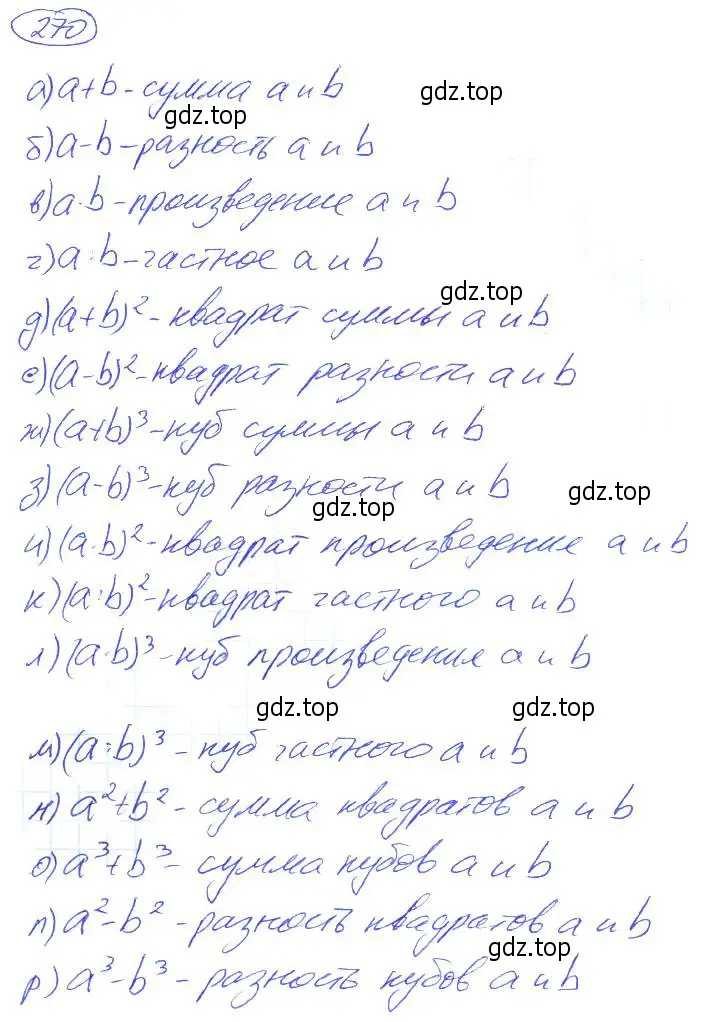 270
а) a+b - сумма a и b
gdz.top
gdz.top
б) a-b - разность a и b
в) a·b - произведение a и b
г) a:b - частное a и b
gdz.top
д) (a+b)² - квадрат суммы a и b
е) (a-b)² - квадрат разности a и b
ж) (a+b)³ - куб суммы a и b
з) (a-b)³ - куб разности a и b
gdz.top
gdz.top
и) (a·b)² - квадрат произведение a и b
к) (a:b)² - квадрат частного a и b
л) (a·b)³ - куб произведения a и b
gdz.top
gdz.top
м) (a:b)³ - куб частного a и b
н) a²+b² - сумма квадратов a и b
о) a³+b³ - сумма кубов a и b
п) a²-b² - разность квадратов a и b
gdz.top
р) a³-b³ - разность кубов a и b